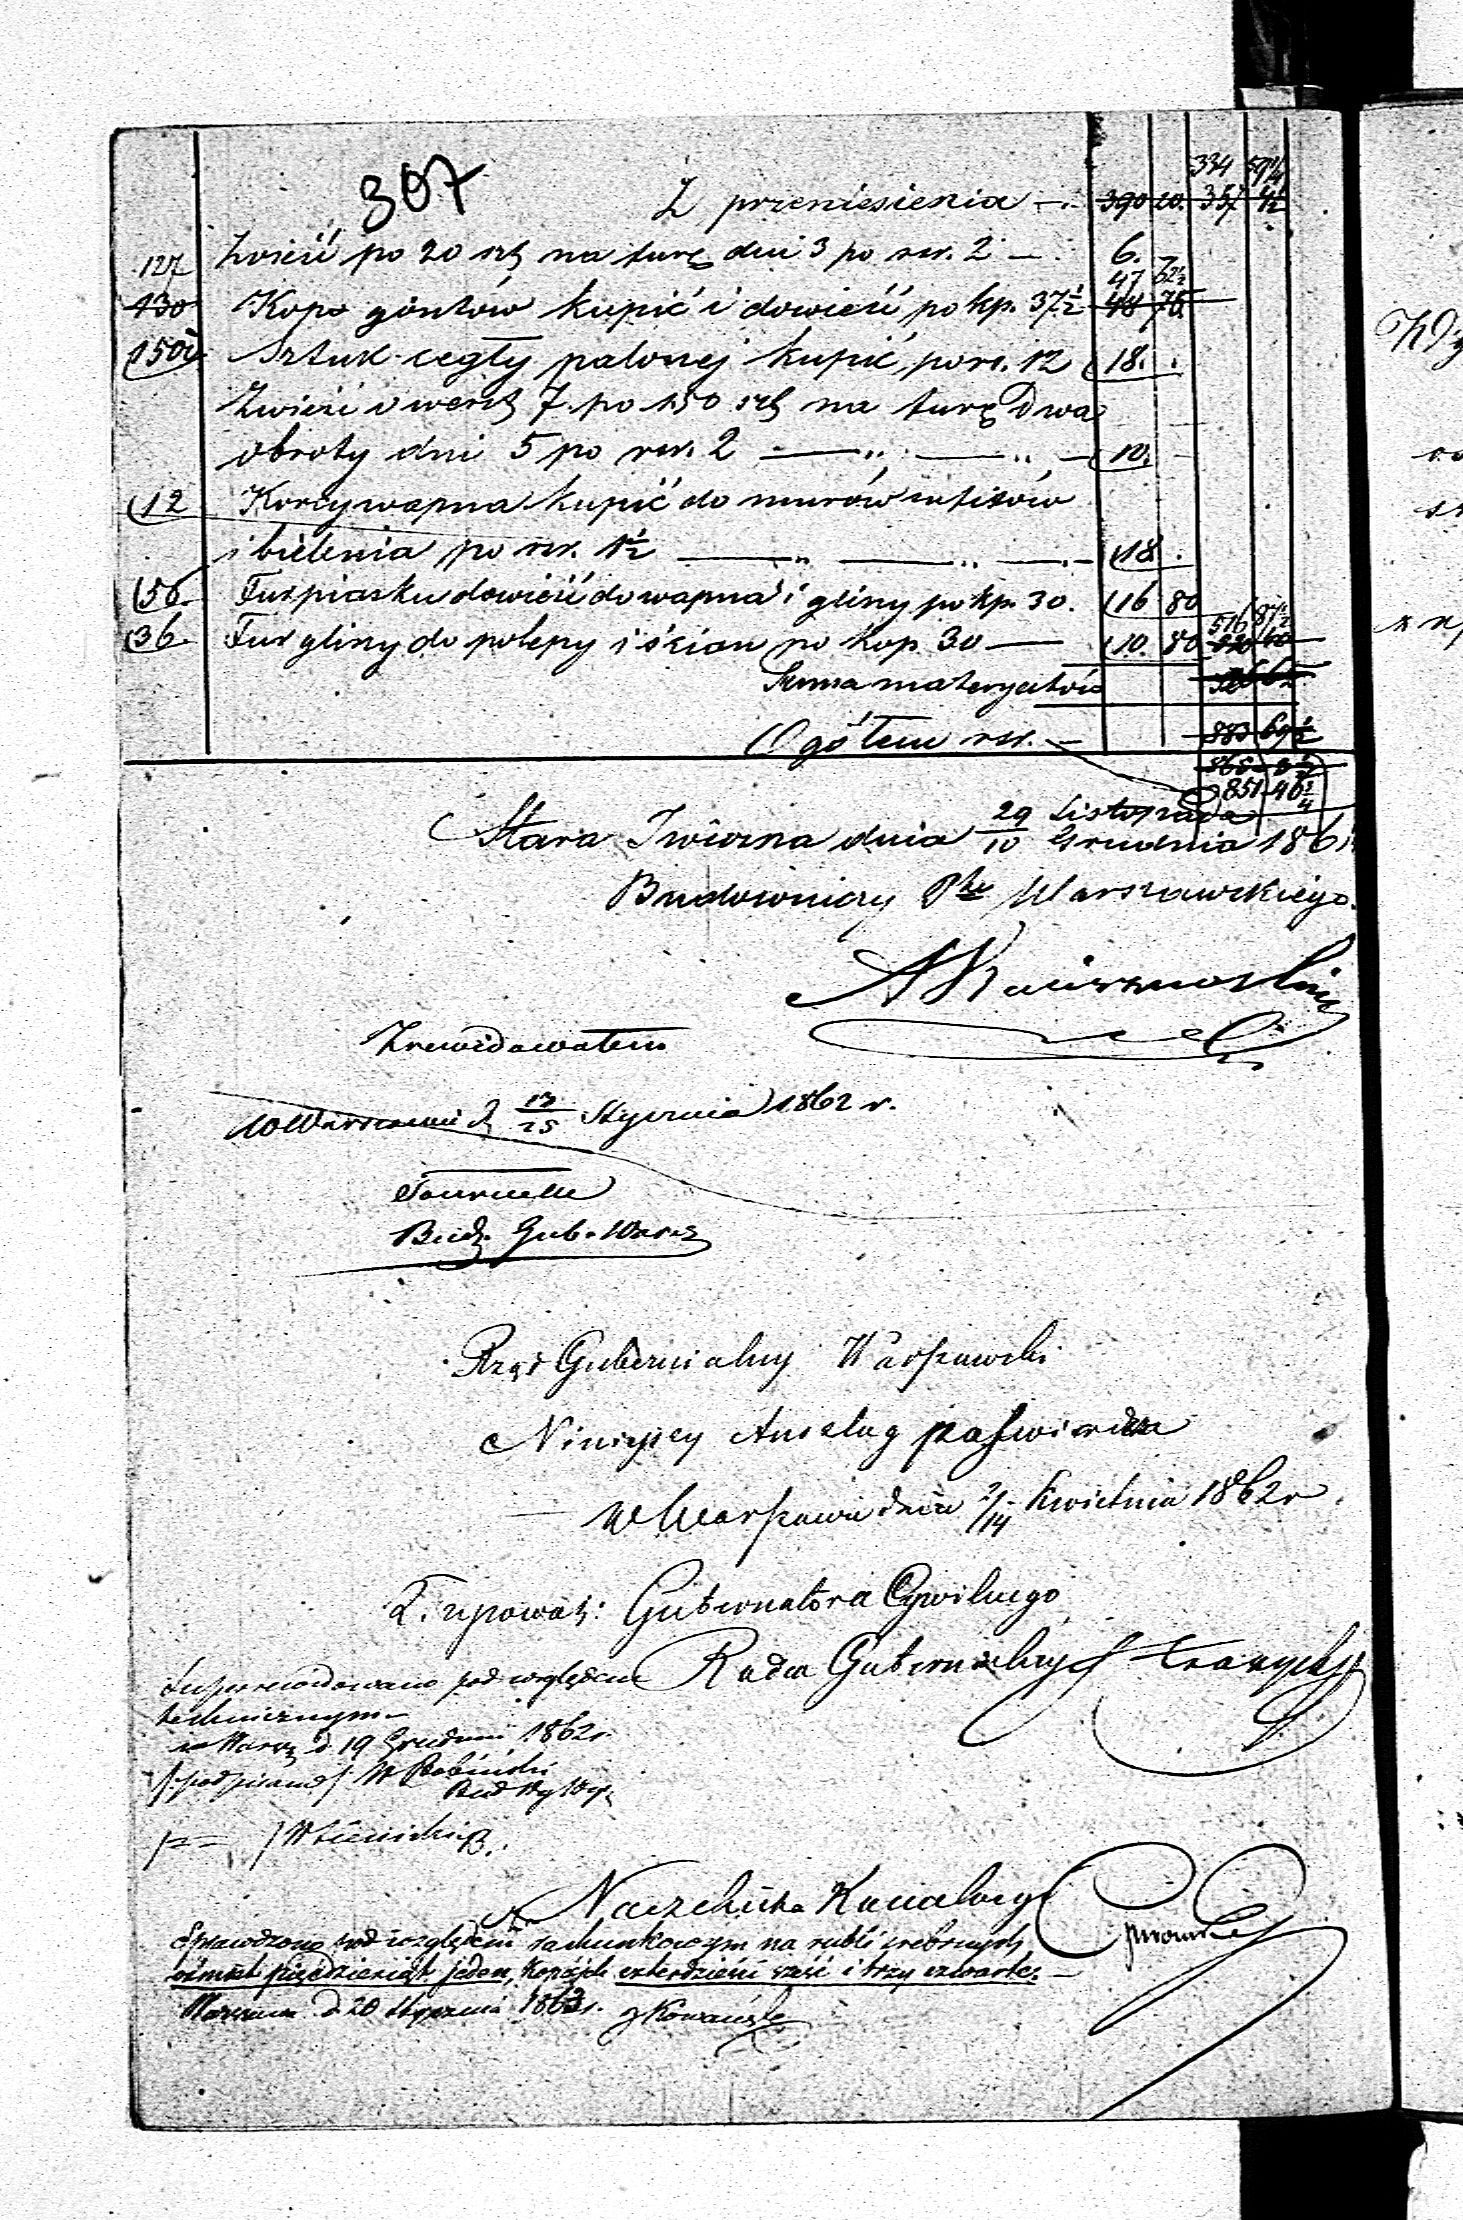 307
334 59 1/4
Z przeniesienia — 390 20. 357 4 1/2
Zwieść po 20 szt na furę dni 3 po rsr. 2 — 6.
127 47 62 1/2
130 Kopo gontów kupić i dowieść po kp. 37 1/2 48 75
1500 Sztuk cegły palonej kupić po rs. 12 18.
Zwieźć o werst 7. po 150 szt na furę Dwa
obroty dni 5 po rsr. 2 — „ — „ — 10.
12 Korcy wapna kupić do murów
i bielenia po rsr. 1 1/2 — „ — „ — 18.
56. Fur piasku dowieść do wapna i gliny po kp. 30. 16 80
516 87 1/2
36. Fur gliny do polepy i ścian po kop 30 — 10. 80
Summa materyałów
Ogółem rsr. — 883 69 1/2
851 46 3/4
Stara Iwiczna dnia 29/10 Listopada Grudnia 1861
Budowniczy Ptu Warszawskiego.
Zrewidowałem
w Warszawie d 13/25 Stycznia 1862 r.
Tournelle
Bud. Gub. Warsz
Rząd Gubernialny Warszawski
Niniejszy Anszlag poświadcza
w Warszawie dnia 2/14 Kwietnia 1862 r.
Z. upoważ: Gubernatora Cywilnego
Radca Gubernialny
Superrewidowano pod względem
technicznym —
w Warsz d. 19 Grudnia 1862 r.
/podpisano/
Bud
Naczelnika Kancelaryi
Sprawdzono pod względem rachunkowym na rubli srebrnych
ośmset pięćdziesiąt jeden, kopiejek czterdzieści sześć i trzy czwarte. —
Warszawa d 20 Stycznia 1863 r.